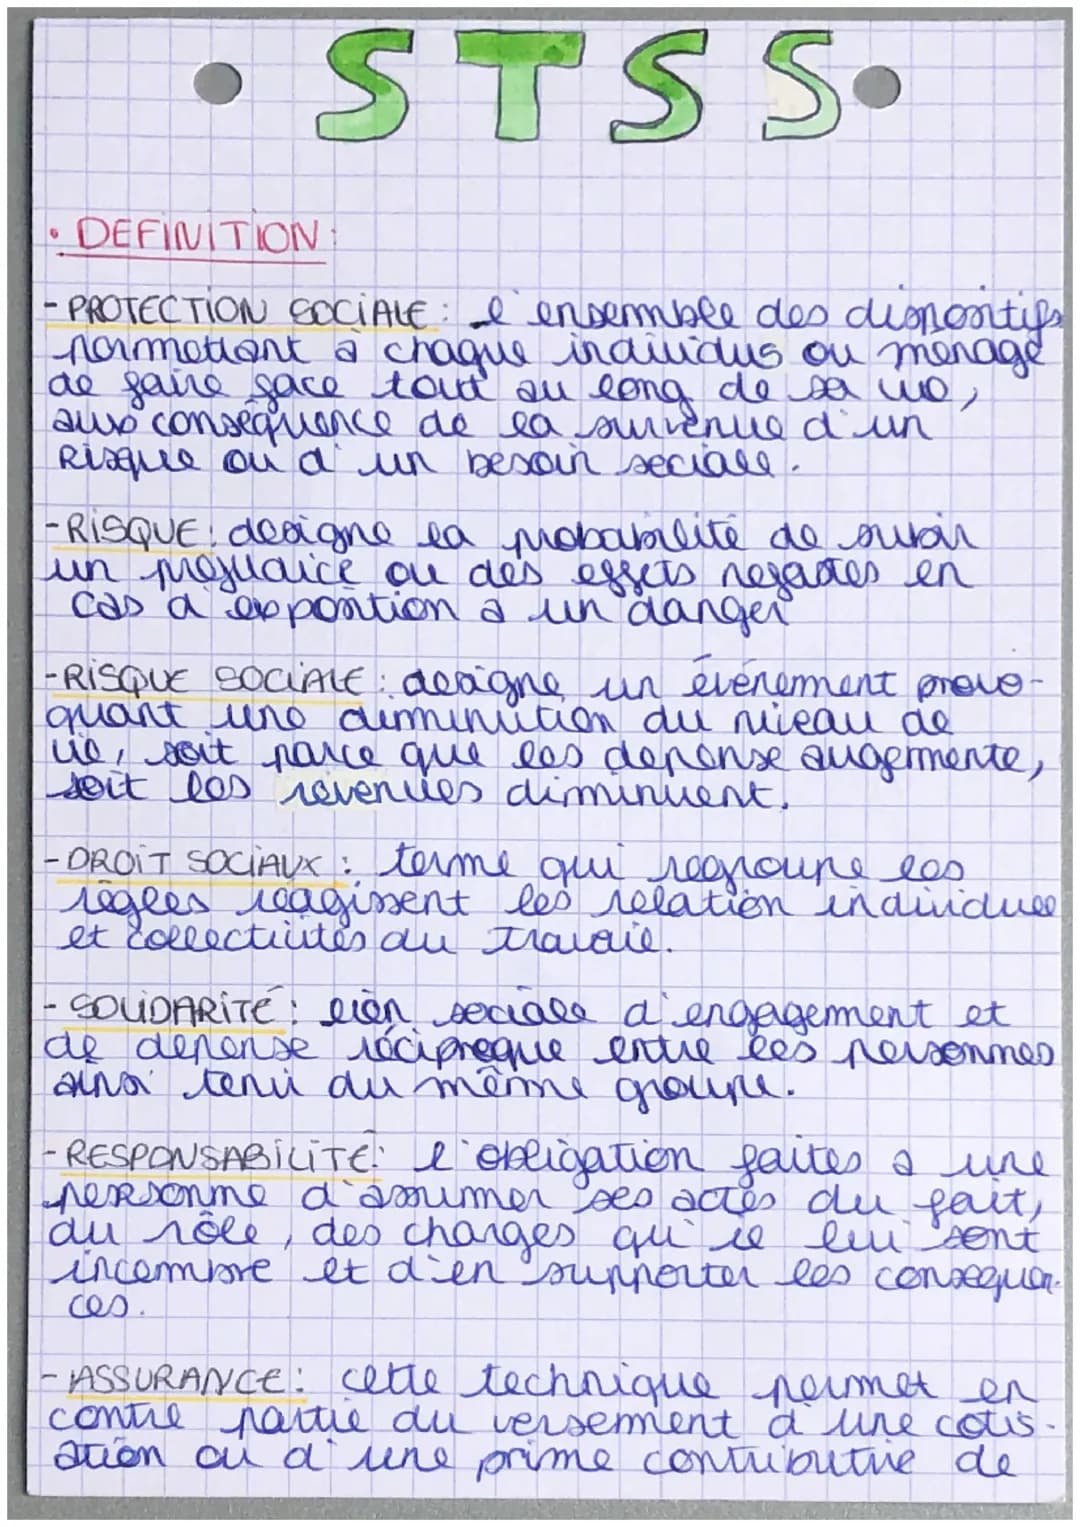 STSS
• DEFINITION:
- PROTECTION SOCIALE : l'ensemble des dispositifs
permettant à chaque individus ou menage
de faire face tout au long de sa vie,
aux conséquence de la survenue d'un
Risque ou d'un besoin sociale.
- RISQUE : designe la probabilité de subir
un préjudice ou des effets negatifs en
cas d'exposition a un danger
- RISQUE SOCIALE : designe un événement provo-
quant une diminution du niveau de
vie, soit parce que les depense augemente,
soit les revenues diminuent.
- DROIT SOCIAUX : terme qui regroupe les
règles réagissent les relation individuel
et collectivités du travail.
- SOLIDARITÉ : lien sociale d'engagement et
de depense réciproque entre les personnes
ainsi tenu du même groupe.
- RESPONSABILITÉ : l'obligation faites a une
personne d'assumer ses actes du fait,
du rôle, des charges qui lui sont
incombre et d'en supporter les consequen-
ces.
- ASSURANCE : cette technique permet en
contre partie du versement d'une cotis-
ation ou d'une prime contributive de